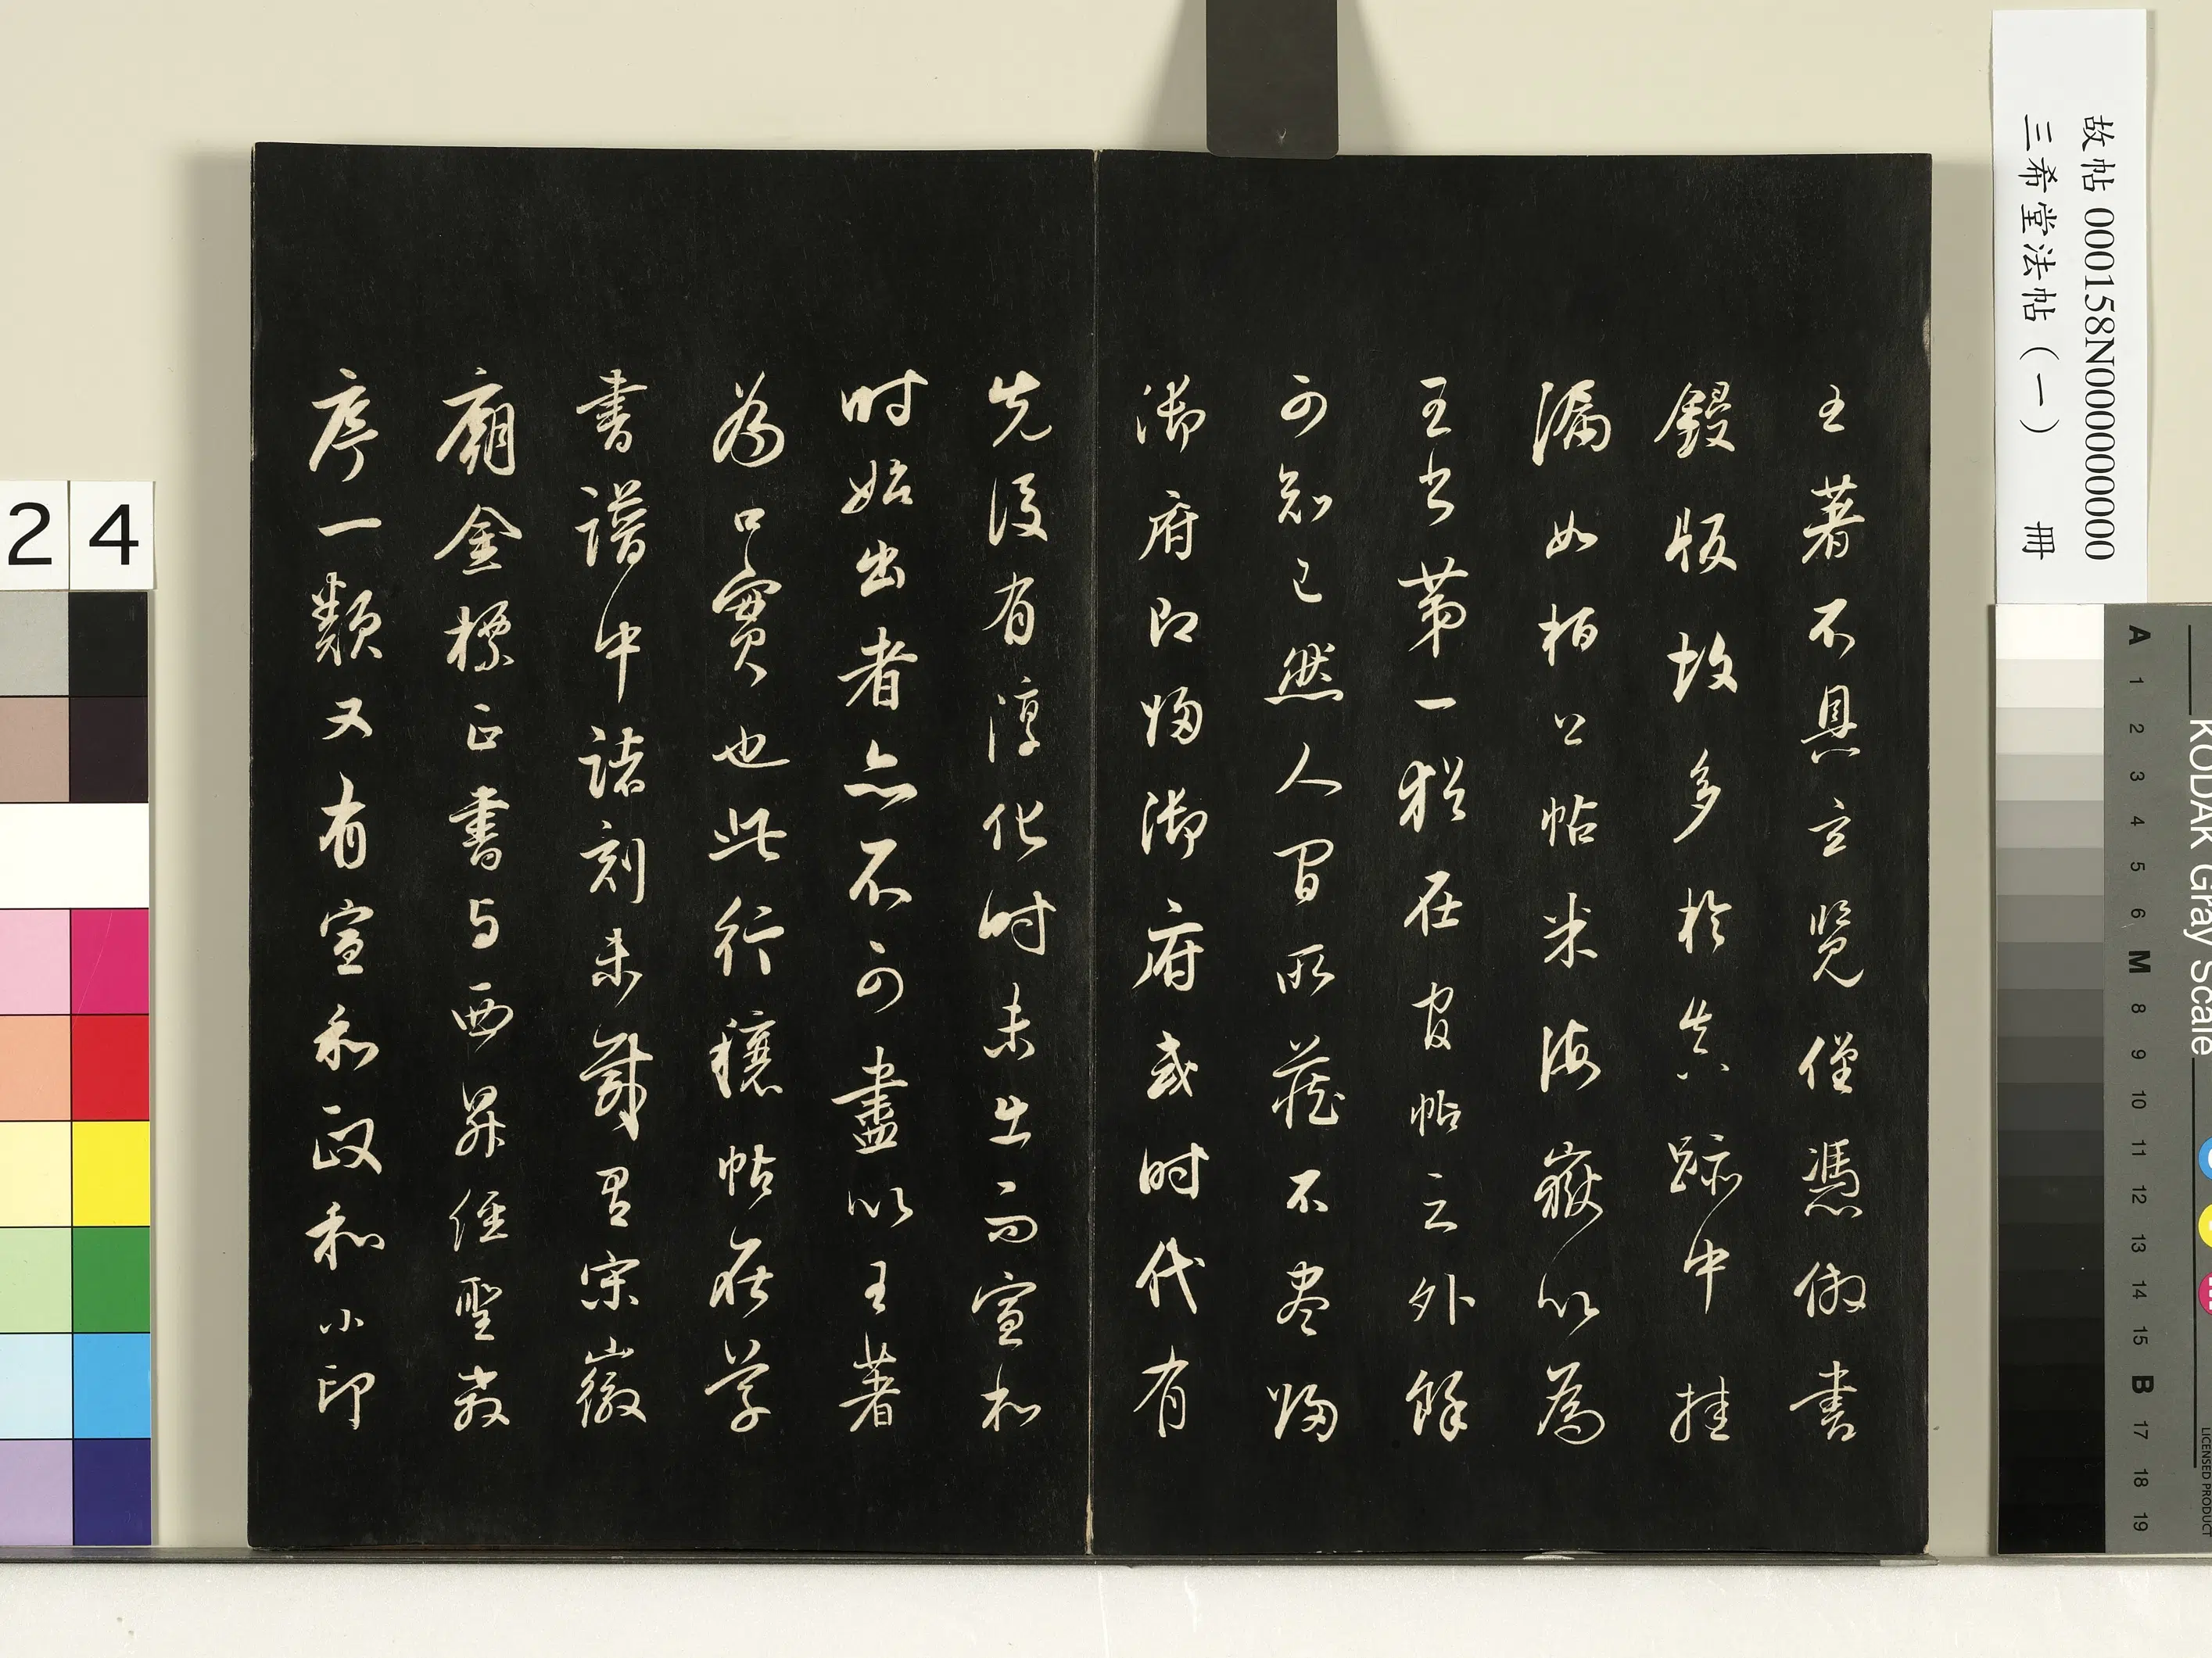 王著不具玄覽僅憑倣書
鋟版故多於真跡中挂
漏如桓公帖米海嶽以為
王書第一猶在官帖之外餘
可知已然人間所藏不盡歸
御府即歸御府或時代有
先後有淳化時未出而宣和
時始出者亦不可盡以王著
為口實也此行穰帖在草
書譜中諸刻未載宋徽
廟金標正書與西昇經聖教
序一類又有宣和政和小印
故帖 000158N000000000
三希堂法帖（一） 冊
24
KODAK Gray Scale
A 1 2 3 4 5 6 M 8 9 10 11 12 13 14 15 B 17 18 19
LICENSED PRODUCT